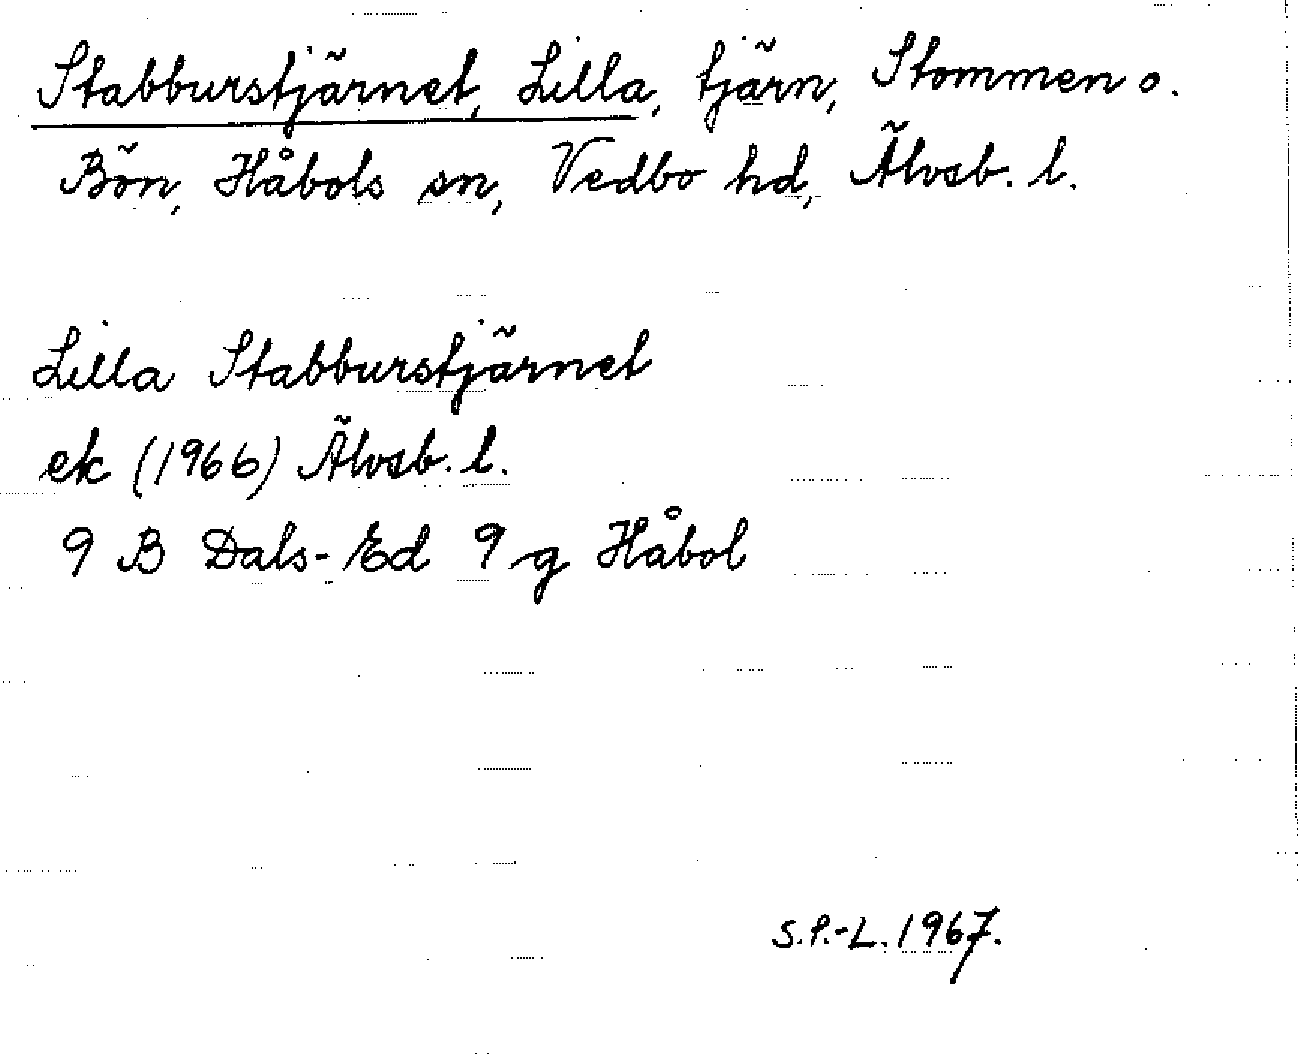 Stabburstjärnet, Lilla, tjärn, Stommen o.
Bön, Håbols sn, Vedbo hd, Älvsb. l.
Lilla Stabburstjärnet
ek (1966) Älvsb. l.
9 B Dals-Ed 9 g Håbol
S.P.-L. 1967.